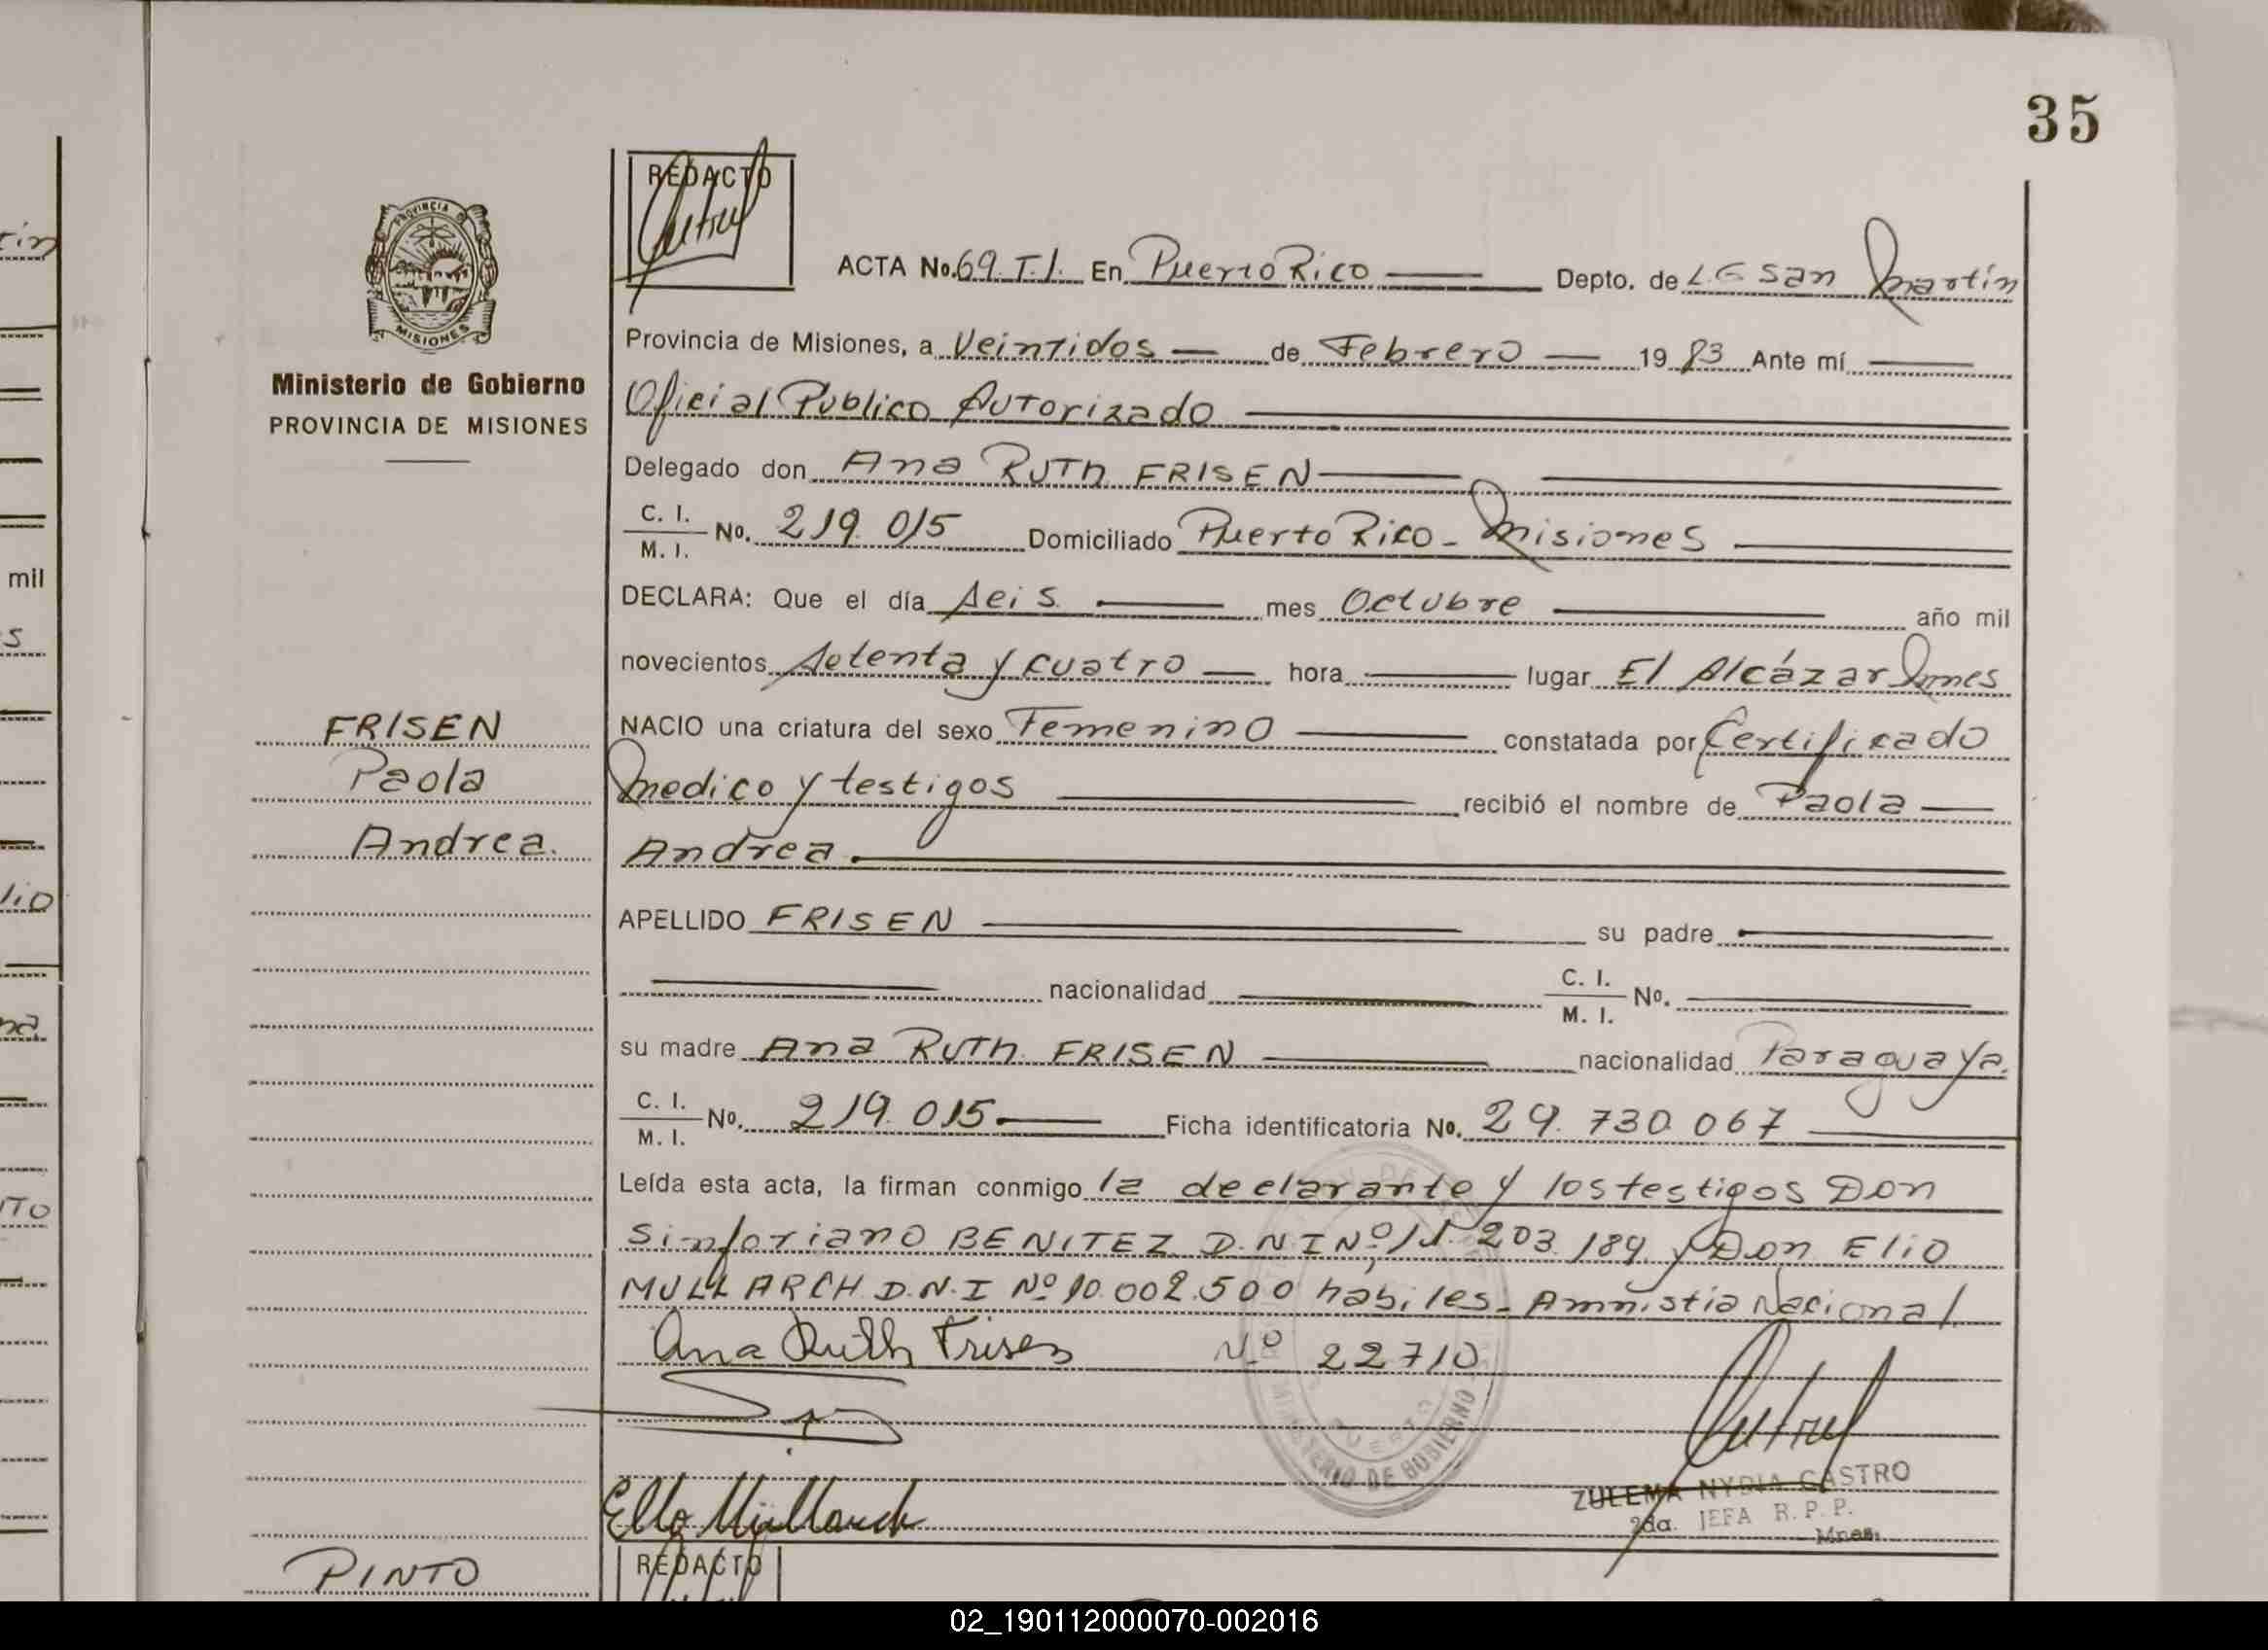 35
REDACTO
PROVINCIA
MISIONES
ACTA No. 69. T.I. En Puerto Rico Depto. de L G San Martín
Provincia de Misiones, a Veintidos de Febrero 19 83 Ante mí
Ministerio de Gobierno
PROVINCIA DE MISIONES
Oficial Publico Autorizado
Delegado don Ana RUTh FRISEN
C. I.
M. I. No. 219.015 Domiciliado Puerto Rico - Misiones
DECLARA: Que el día seis mes Octubre año mil
novecientos setenta y cuatro hora lugar El Alcázar Mnes
FRISEN
Paola
Andrea.
NACIO una criatura del sexo Femenino constatada por Certificado
medico y testigos recibió el nombre de Paola
Andrea.
APELLIDO FRISEN su padre
nacionalidad C. I.
M. I. No.
su madre Ana RUTh FRISEN nacionalidad Paraguaya.
C. I.
M. I. No. 219.015 Ficha identificatoria No. 29.730.067
Leída esta acta, la firman conmigo la declarante y los testigos Don
Sinforiano BENITEZ D.N.I Nº 11.203.189 y Don Elio
MULLARCH D.N.I Nº 10.002.500 habiles - Amnistia Nacional
Ana Ruth Frisen Nº 22710
MINISTERIO DE GOBIERNO
Elio Müllarch
ZULEMA NYDIA CASTRO
2da. JEFA R. P. P.
Mnes.
PINTO
REDACTO
mil
02_190112000070-002016